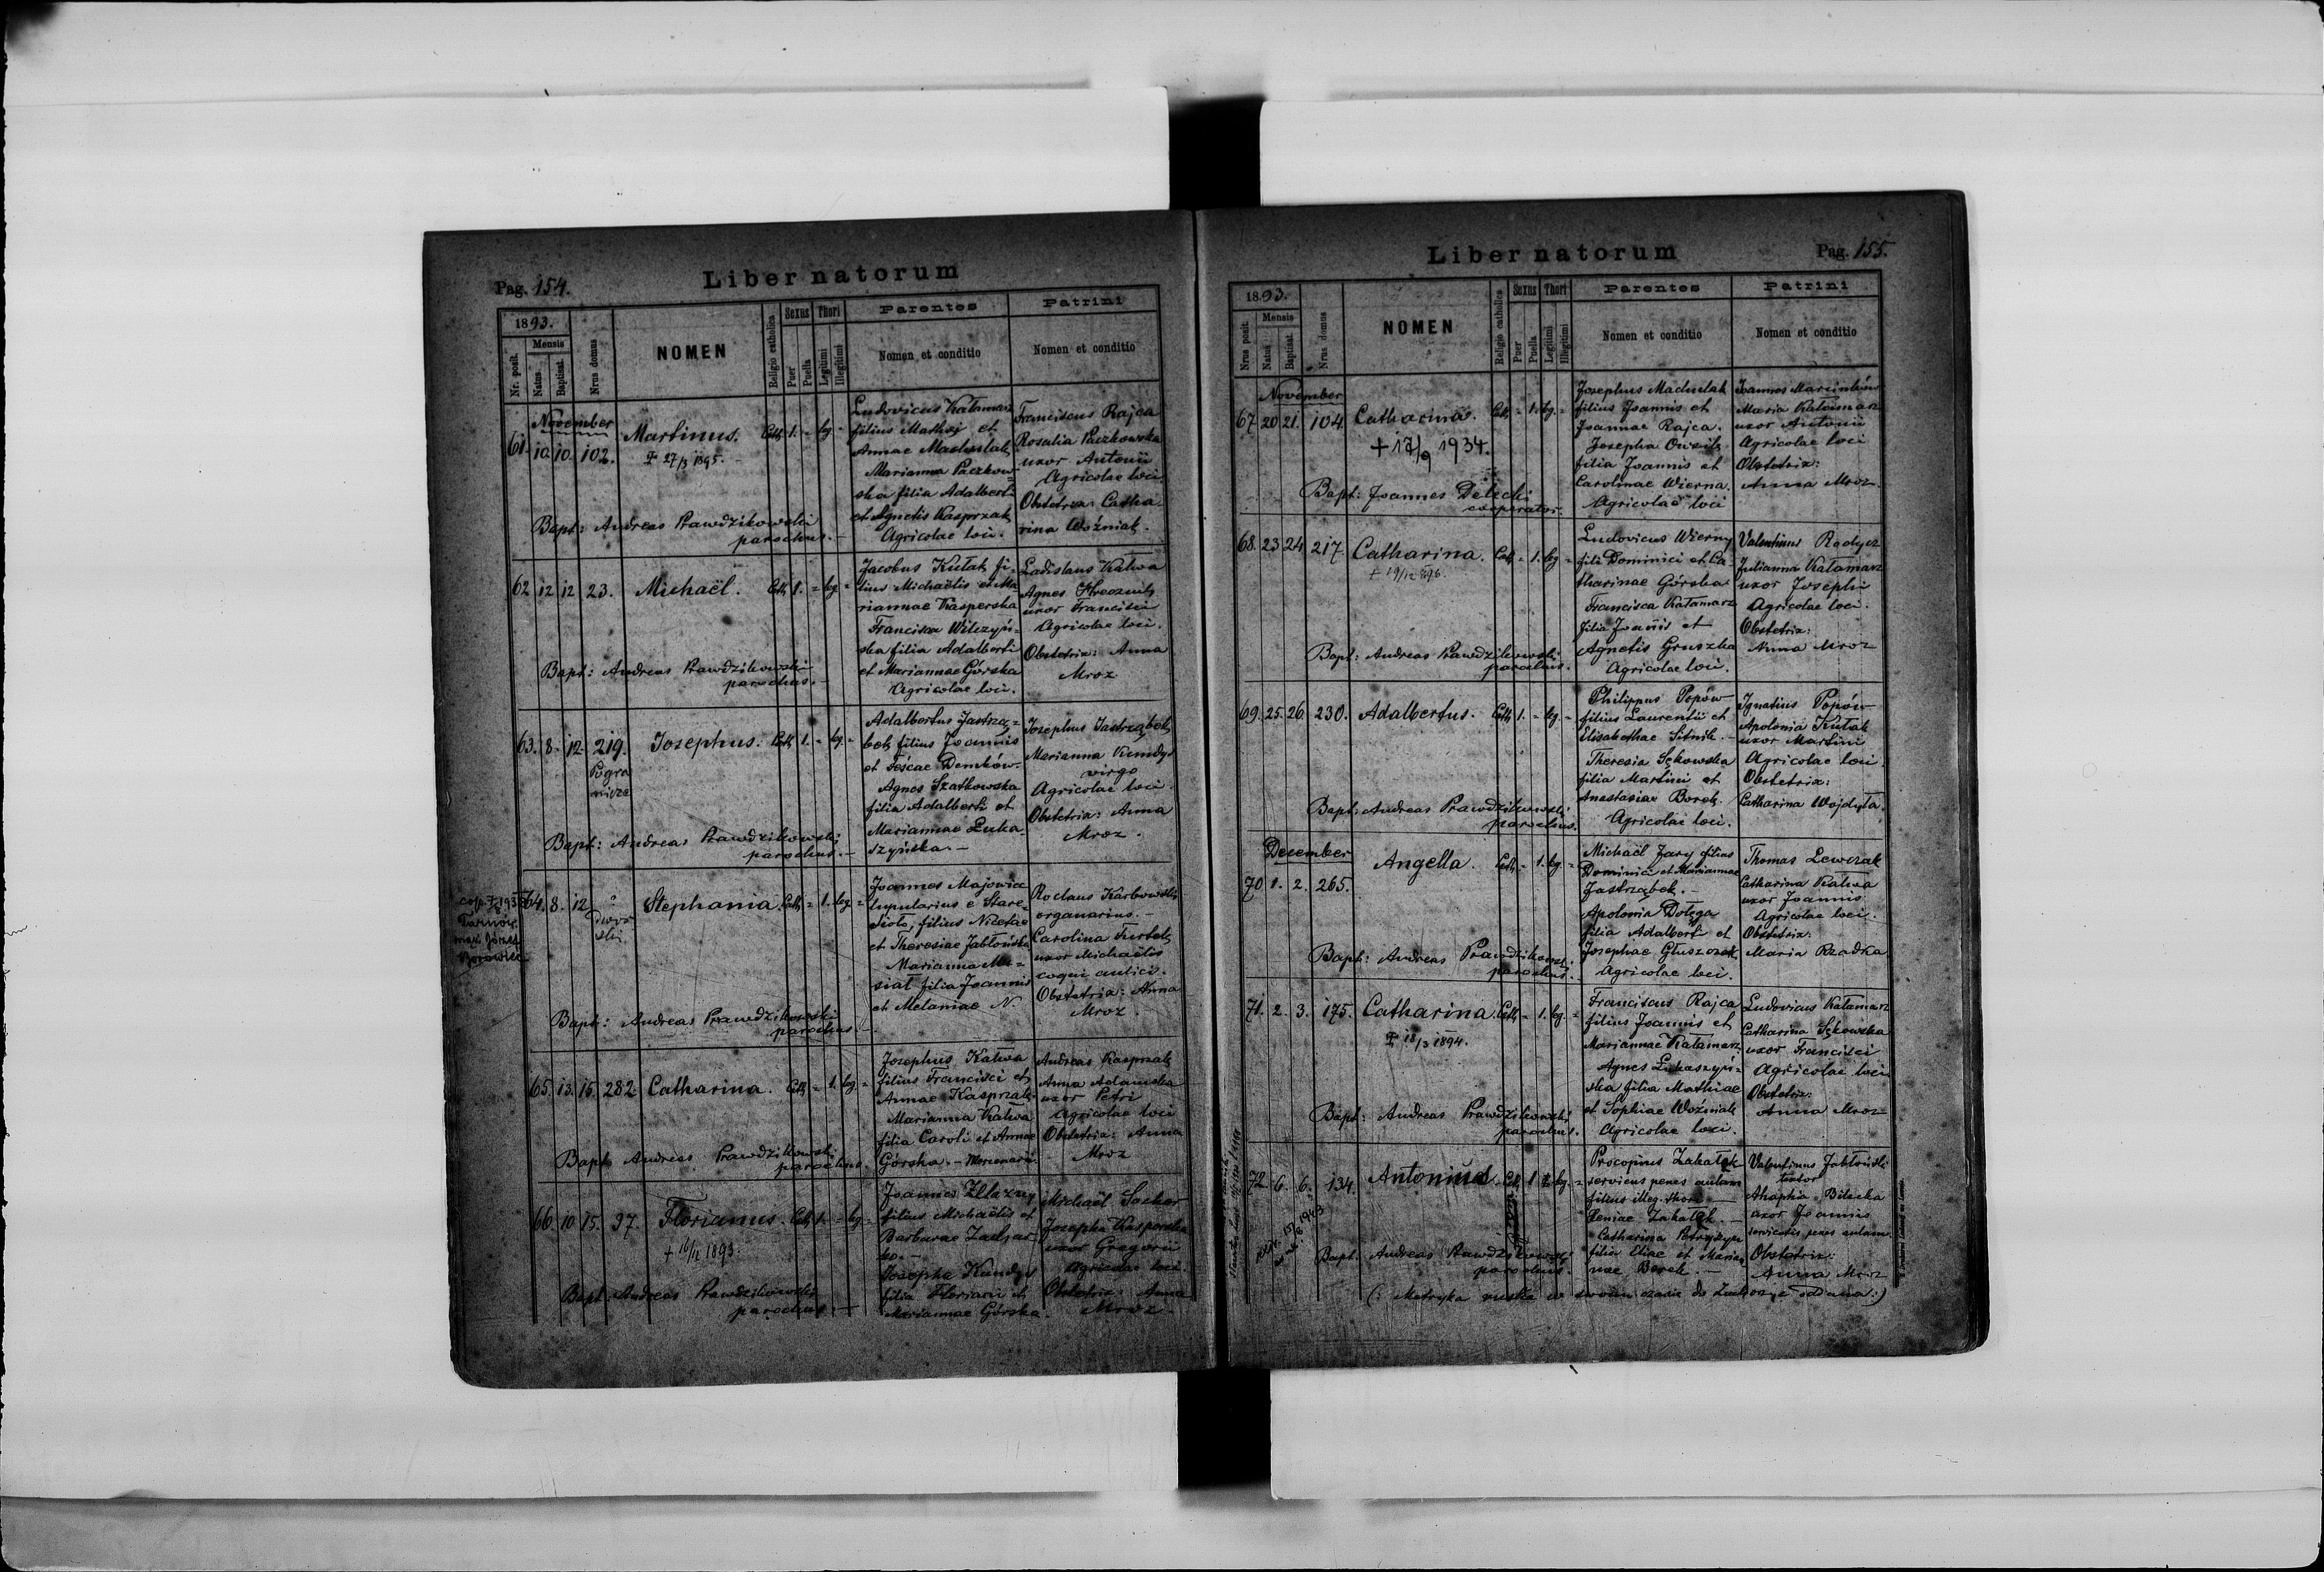 Pag. 154.
Liber natorum
1893.
Nr. posit.
Mensis
Natus
Baptisat.
Nrus domus
NOMEN
Religio catholica
Sexus
Puer
Puella
Thori
Legitimi
Illegitimi
Parentes
Nomen et conditio
Patrini
Nomen et conditio
November
61. 10. 10. 102. Martinus. Cath. 1. - leg. -
✝ 27/3 1895.
Ludovicus Katamarz
filius Mathaj et
Annae Madulak
Marianna Paczkow-
ska filia Adalberti
et Agnetis Kasprzak
Agricolae loci.
Franciscus Rajca
Rosalia Paczkowska
uxor Antonii
Agricolae loci
Obstetrix: Catha-
rina Woźniak.
Bapt: Andreas Prawdzikowski
parochus.-
62 12 12 23. Michaël. Cath. 1. = leg =
Jacobus Kutak fi-
lius Michaëlis et Ma-
riannae Kasperska
Francisca Wilczyń-
ska filia Adalberti
et Mariannae Górska
Agricolae loci.
Ladislaus Kalwa
Agnes
uxor Francisci
Agricolae loci.
Obstetrix: Anna
Mroz
Bapt: Andreas Prawdzikowski
parochus.-
63. 8. 12. 219. Josephus. Cath. 1. - leg. -
Pogra
nicze
Adalbertus Jastrzą-
bek filius Joannis
et Fescae Demków.
Agnes Szatkowska
filia Adalberti et
Mariannae Łuka
szyńska.-
Josephus Jastrząbek
Marianna Kundys
virgo
Agricolae loci.
Obstetrix: Anna
Mroz.
Bapt: Andreas Prawdzikowski
parochus.-
64. 8. 12. Stephania. Cath. = 1. leg. =
Joannes Majowicz
lupularius e Stare-
Sioło, filius Nicetae
et Theresiae Jabłońska
Marianna Mu-
siat filia Joannis
et Melaniae N.
Rochus Karbowski
organarius.-
Carolina Furtek
uxor Michaëlis
coqui aulici.
Obstetrix: Anna
Mroz.
Bapt: Andreas Prawdzikowski
parochus.-
65. 13. 15. 282. Catharina. Cath. = 1. leg. =
Josephus Kalwa
filius Francisci et
Annae Kasprzak
Marianna Kalwa
filia Caroli et Annae
Górska.- Mercenarii
Andreas Kasprzak
Anna Adamska
uxor Petri
Agricolae loci
Obstetrix: Anna
Mroz
Bapt. Andreas Prawdzikowski
parochus.
66. 10. 15. 97. Florianus. Cath. 1. - leg. -
+ 16/12 1893.
Joannes Żelazny
filius Michaëlis et
Barbarae Zachar-
ko.-
Josepha Kundys
filia Floriani et
Mariannae Górska.
Michaël Sochor
Josepha Kasperska
uxor Gregorii
Agricolae loci
Obstetrix: Anna
Mroz.
Bapt. Andreas Prawdzikowski
parochus.-
Liber natorum
Pag. 155.
1893.
Nrus posit.
Mensis
Natus
Baptisat.
Nrus domus
NOMEN
Religio catholica
Sexus
Puer
Puella
Thori
Legitimi
Illegitimi
Parentes
Nomen et conditio
Patrini
Nomen et conditio
November
67. 20. 21. 104. Catharina. Cath. - 1. leg. -
+ 17/9 1934.
Josephus Madulak
filius Joannis et
Joannae Rajca.
Josepha
filia Joannis et
Carolinae Wierna.
Agricolae loci
Joannes Marcinków
Maria Katamarz
uxor Antonii
Agricolae loci
Obstetrix:
Anna Mroz.
Bapt: Joannes Delecki
cooperator.
68. 23 24 217. Catharina. Cath. - 1. leg. -
+ 19/12 1896.
Ludovicus Wierny
fili Dominici et Ca-
tharinae Górska
Francisca Katamarz
filia Joannis et
Agnetis Gruszka
Agricolae loci.
Valentinus Radycz
Julianna Katamarz
uxor Josephi
Agricolae loci.
Obstetrix:
Anna Mroz
Bapt: Andreas Prawdzikowski
parochus.
69. 25. 26. 230. Adalbertus. Cath. 1. - leg. -
Philippus Popów
filius Laurentii et
Elisabethae Sitnik.-
Theresia Sękowska
filia Martini et
Anastasiae Borek.
Agricolae loci.
Ignatius Popów
Apolonia Kutak
uxor Martini
Agricolae loci.
Obstetrix:
Catharina Wojdyła.
Bapt: Andreas Prawdzikowski
parochus.
December
70. 1. 2. 265. Angella. Cath. - 1. leg. -
Michaël Jary filius
Dominici et Mariannae
Jastrząbek.-
Apolonia Dołęga
filia Adalberti et
Josephae Głuszczak
Agricolae loci.
Thomas Lewczak
Catharina Kalwa
uxor Joannis
Agricolae loci.
Obstetrix:
Maria Rzadka
Bapt: Andreas Prawdzikowski.
parochus.
71. 2. 3. 175. Catharina. Cath. - 1. leg. -
✝ 18/3 1894.
Franciscus Rajca
filius Joannis et
Mariannae Katamarz
Agnes Łukaszyń-
ska filia Mathiae
et Sophiae Woźniak
Agricolae loci.
Ludovicus Katamarz
Catharina Sękowska
uxor Francisci
Agricolae loci
Obstetrix:
Anna Mroz
Bapt: Andreas Prawdzikowski
parochus.
72. 6. 6. 134. Antonius. Cath. 1 leg. =
Procopius Zahałak
serviens penes aulam
filius illeg. thori -
Zahałak.-
Catharina
filia Eliae et Marian
nae Borek.-
Valentinus Jabłoński
Ahaphia Bilecka
uxor Joannis
servientis penes aulam.
Obstetrix:
Anna Mroz
Bapt: Andreas Prawdzikowski
parochus.
(: Metryka ruska w swoim czasie do oddana:)